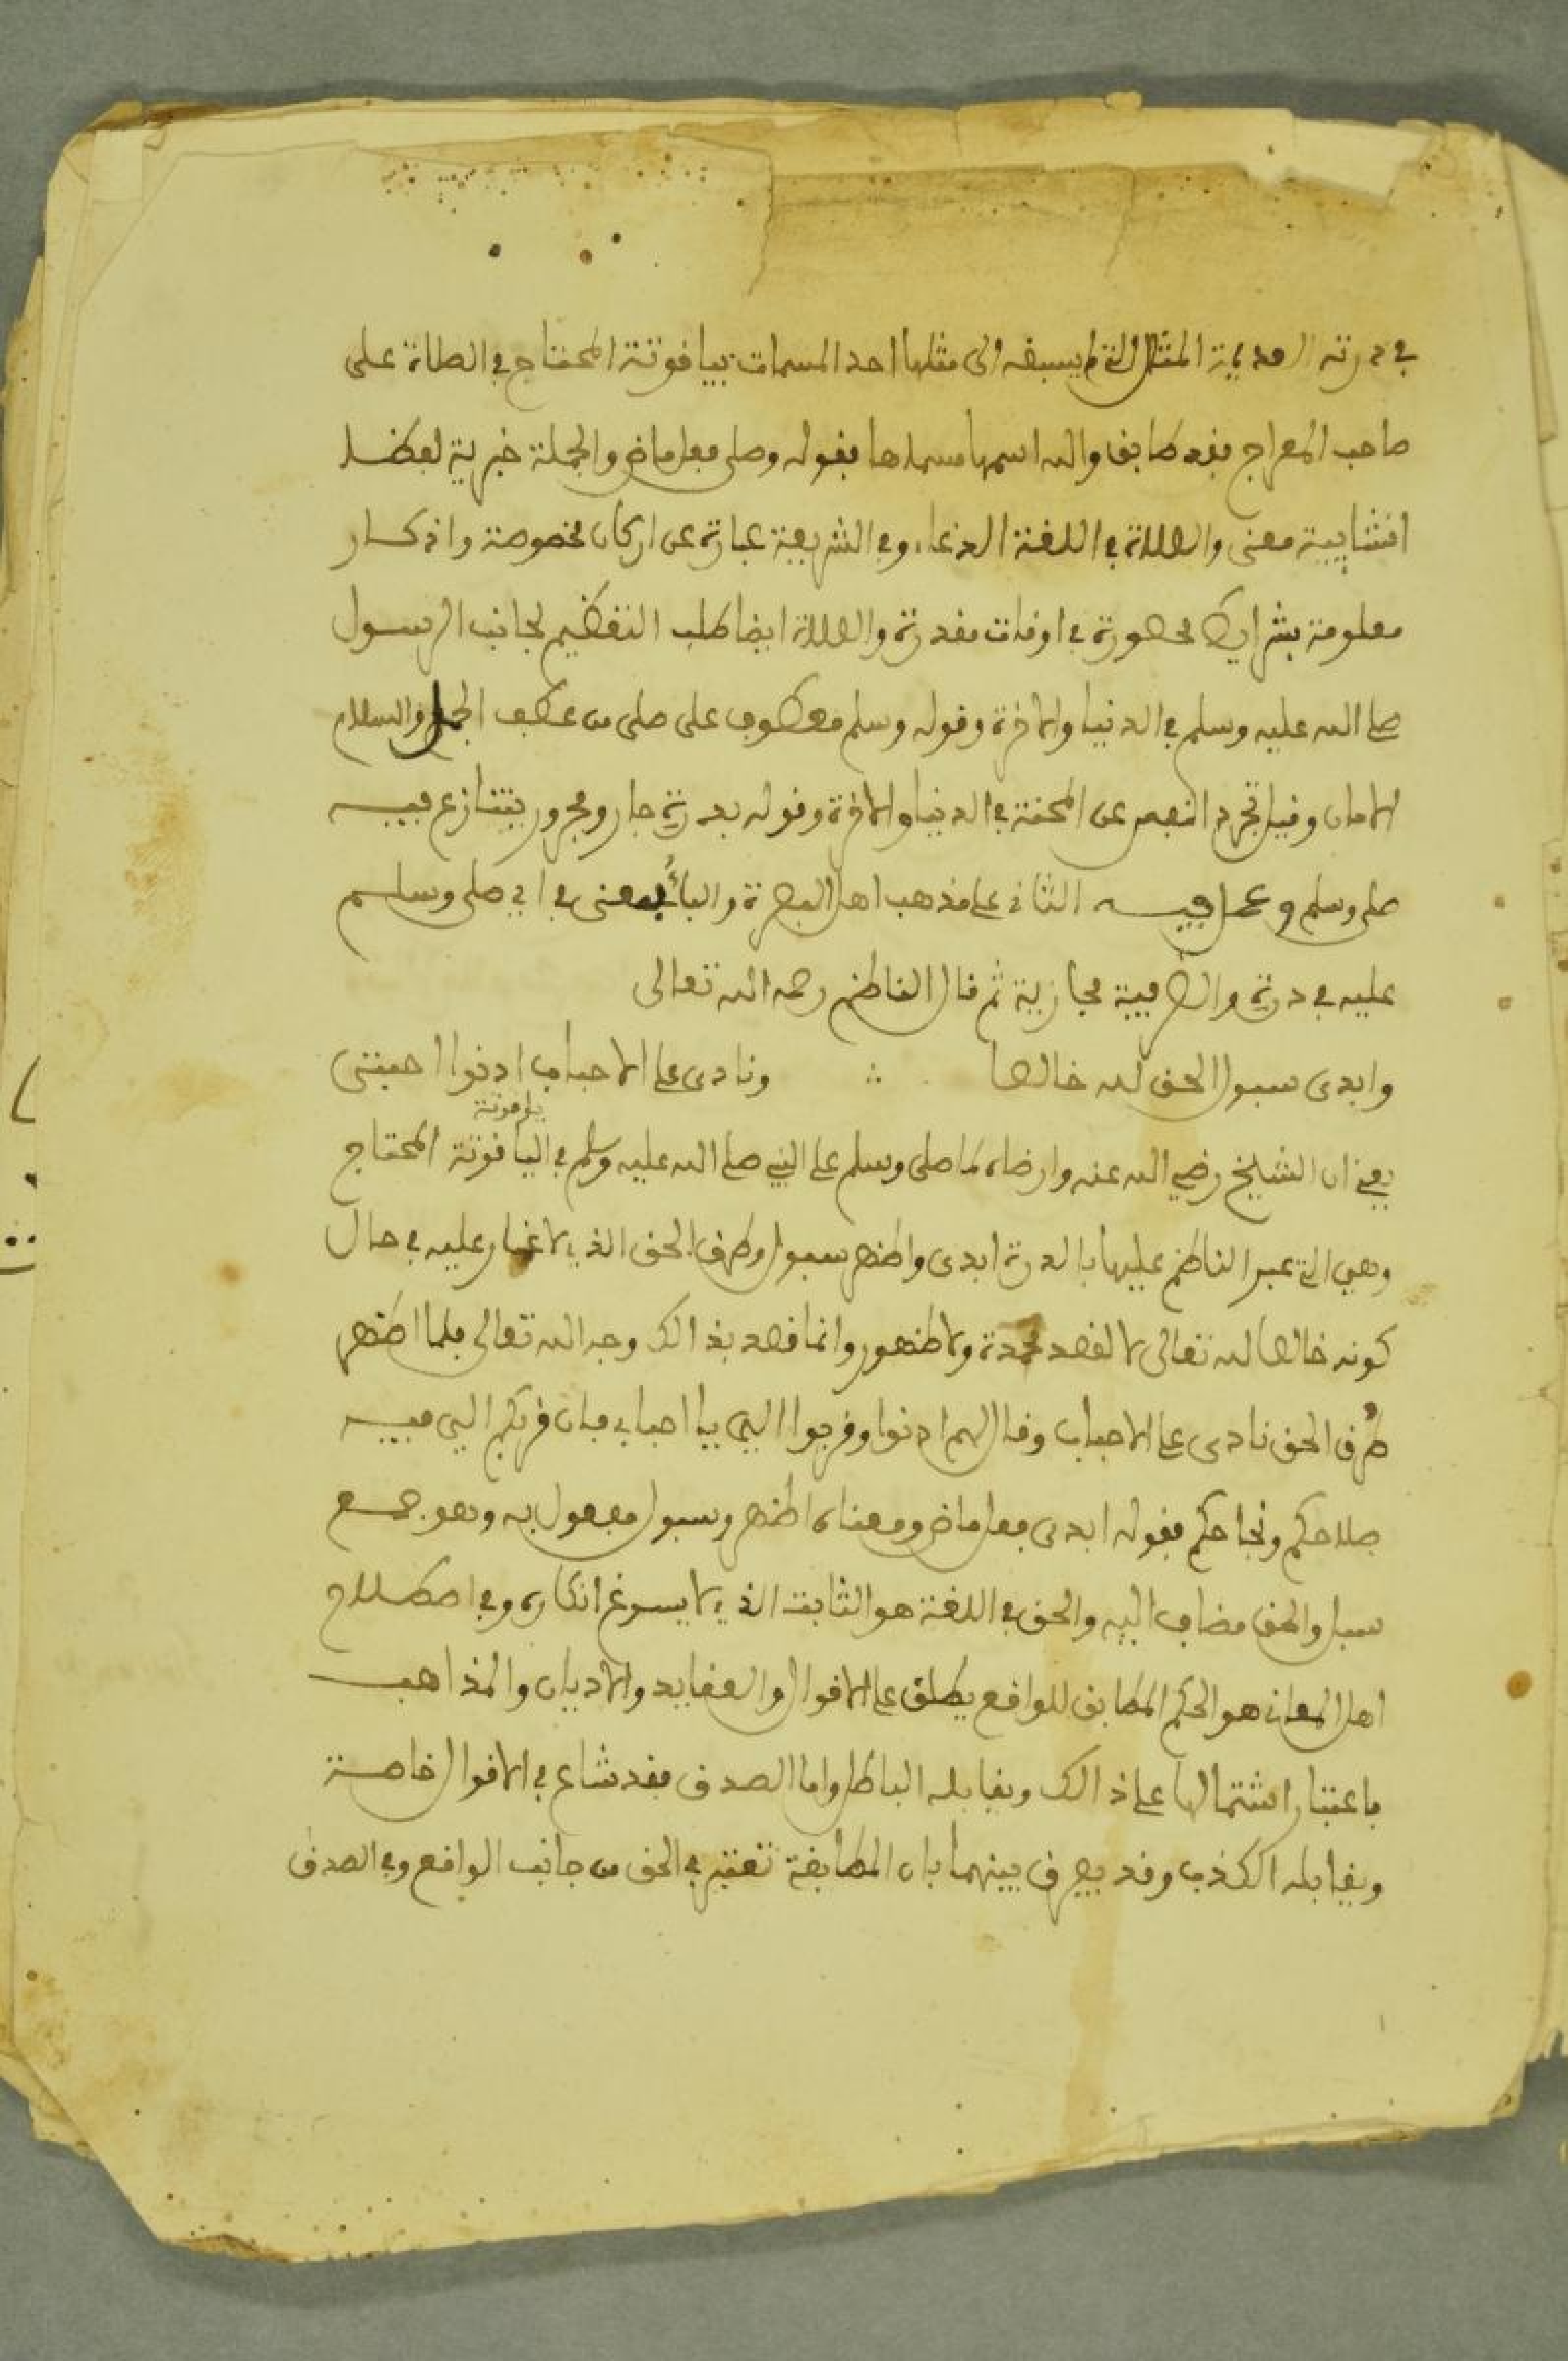 في درته العديمة المثال التي لم يسبقه الى مثلها احد المسمات بياقوتة المحتاج في الصلاة على
صاحب المعراج فقد طابق والله اسمها مسماها فقوله وصلى فعل ماض والجملة خبرية لفظا
انشايية معنى والصلاة في اللغة الدعاء وفي الشريعة عبارة عن اركان مخصوصة واذكار
معلومة بشرايط محصورة في اوقات مقدرة والصلاة ايضا طلب التعظيم لجانب الرسول
صلى الله عليه وسلم في الدنيا والاخرة وقوله وسلم معطوف على صلى من عطف الجمل والسلام
الامان وقيل تجرد النفس عن المحنة في الدنيا والاخرة وقوله بدرة جار ومجرور يتنازع فيه
صلى وسلم وعمل فيه الثاني على مذهب اهل البصرة والباء بمعنى في اي صلى وسلم
عليه في درة والظرفية مجازية ثم قال الناظم رحمه الله تعالى
وابدى سبول الحق لله خالصا ∴ ونادى على الاحباب ادنوا احبتى
يعني ان الشيخ رضي الله عنه وارضاه لما صلى وسلم على النبي صلى الله عليه وسلم في الياقوتة ياقوتة المحتاج
وهي التي عبر الناظم عليها بالدرة ابدى واظهر سبول وطرق الحق الذي لا غبار عليه في حال
كونه خالصا لله تعالى لا لقصد محمدة ولا ظهور وانما قصد بذالك وجه الله تعالى فلما اظهر
طُرق الحق نادى على الاحباب وقال لهم ادنوا وقربوا الي يا احبابي فان قربكم الي فيه
صلاحكم ونجاحكم فقوله ابدى فعل ماض ومعناه اظهر وسبول مفعول به وهو جمع
سبل والحق مضاف اليه والحق في اللغة هو الثابت الذي لا يسوغ انكاره وفي اصطلاح
اهل المعاني هو الحكم المطابق للواقع يطلق على الاقوال والعقايد والاديان والمذاهب
باعتبار اشتمالها على ذالك ويقابله الباطل واما الصدق فقد شاع في الاقوال خاصة
ويقابله الكذب وقد يفرق بينهما بان المطابقة تعتبر في الحق من جانب الواقع وفي الصدق